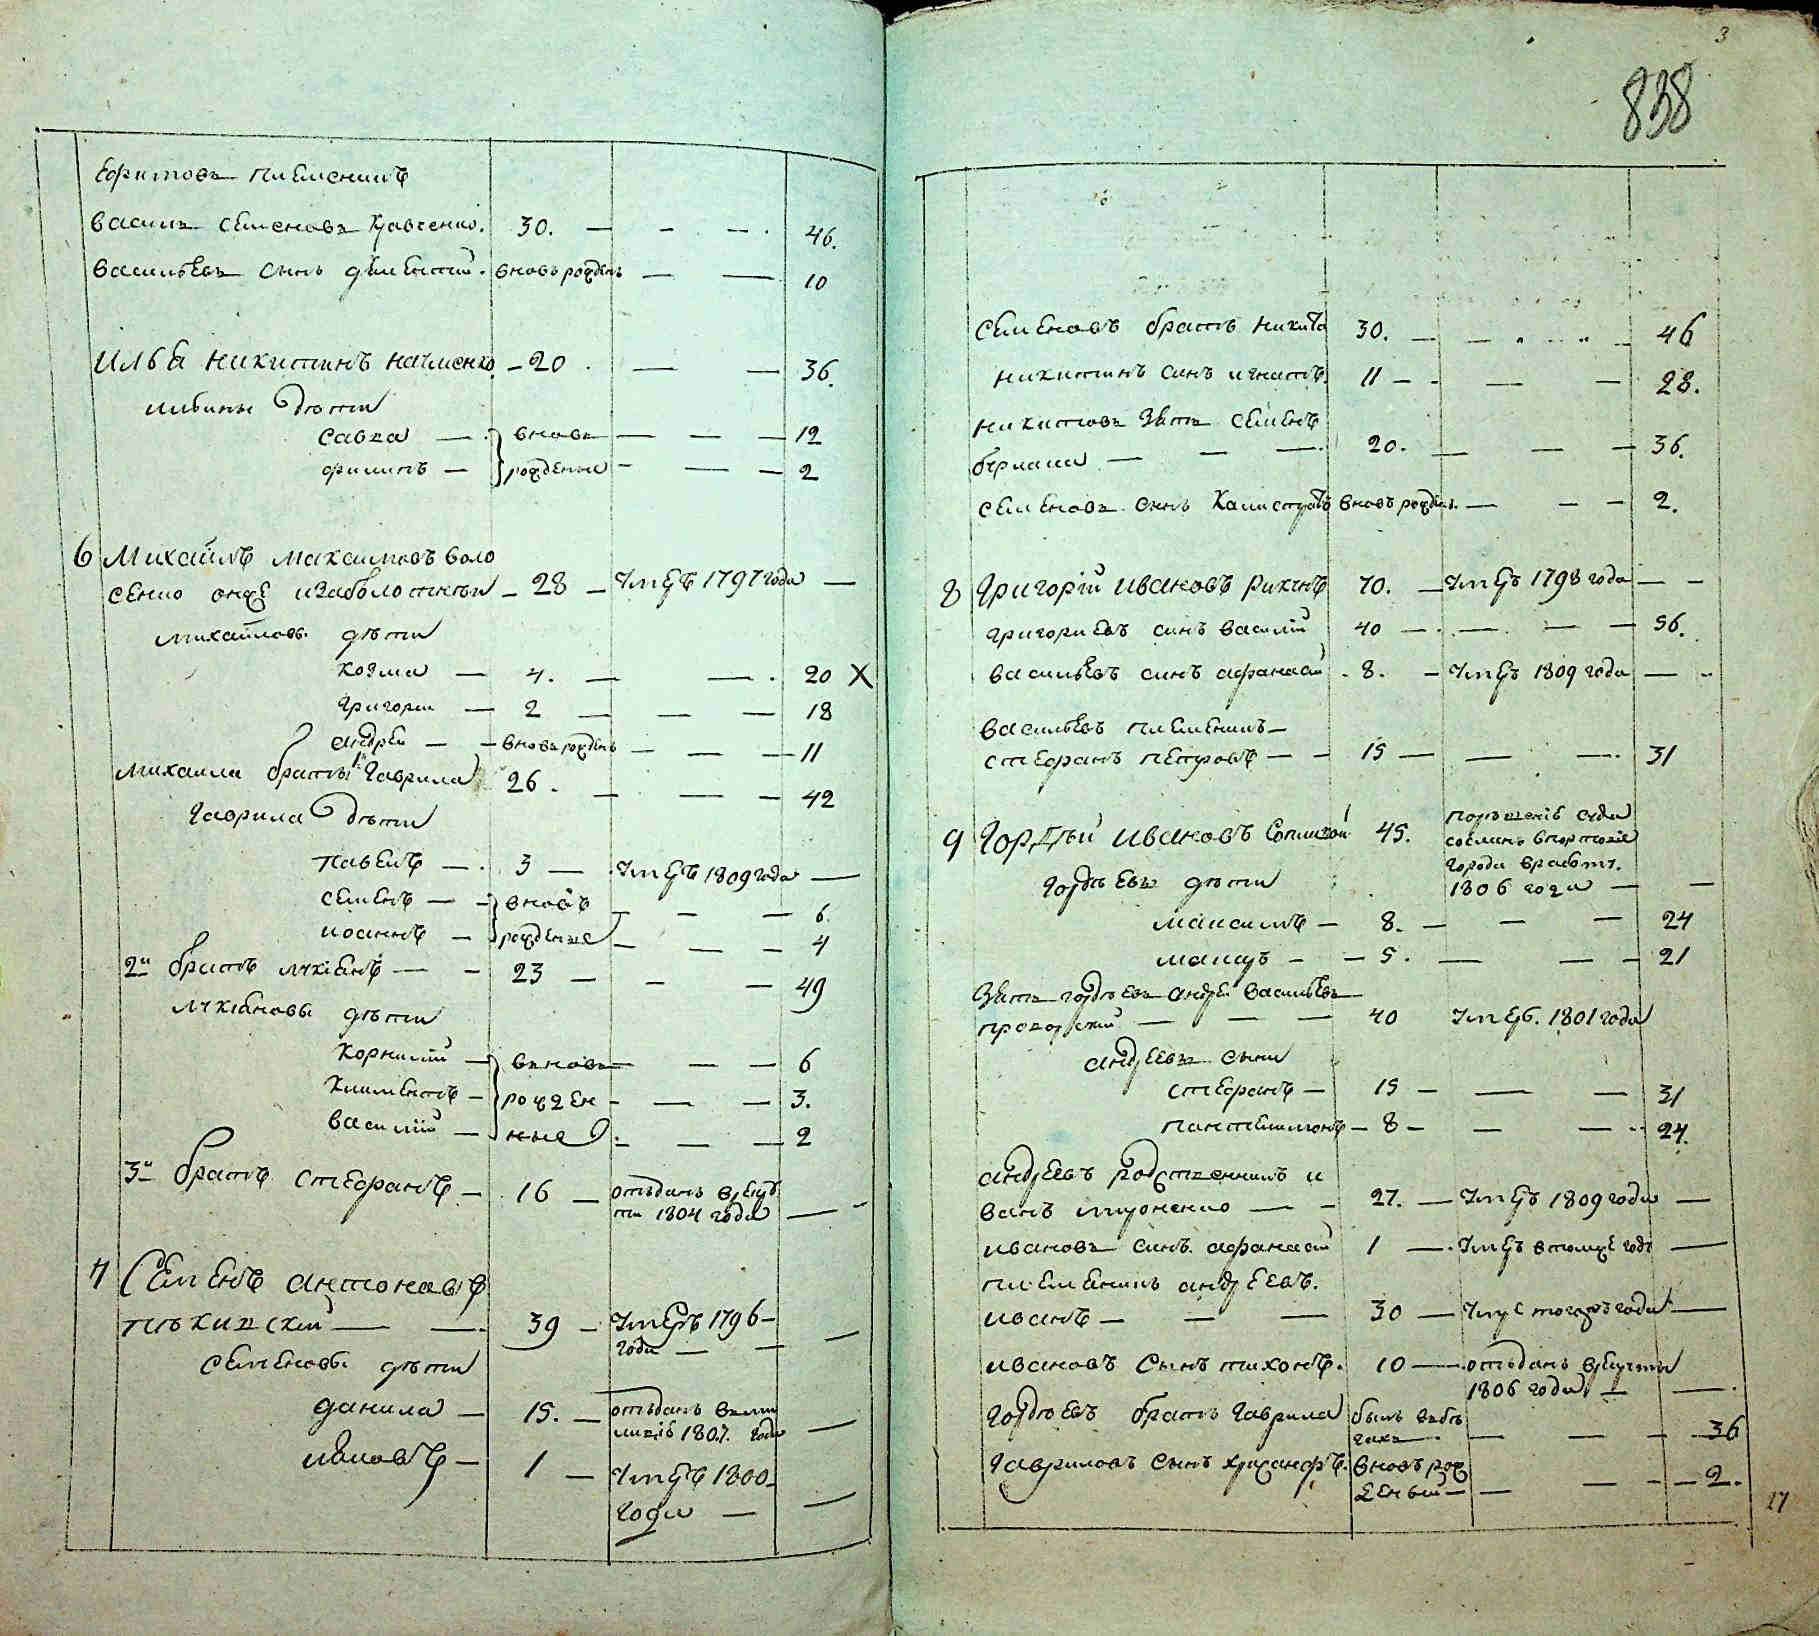 Ефимовъ племеникъ
василь Семеновъ Кравченко. 30. — — — 46.
васильевъ сынъ дементий. вновь рожденъ — — 10
Илья Никитинъ Науменко — 20 — — 36.
ильины дѣти
савва — вновь — — — 12
филипъ — рожденные — — — 2
6 Михайлъ Максимовъ воло
сенко онже изаболотный — 28 — умеръ 1797 года —
михайловы дѣти
козма — 4. — — 20 X
григорий — 2 — — — 18
андрей — вновь рожденъ — — — 11
михаила братья 1й гаврила 26. — — — 42
гаврила дѣти
павелъ — 3 — умеръ 1809 года —
семенъ — вновь — — — 6.
иоаннъ — рожденые — — — 4
2й братъ лукіянъ — — 23 — — — 49
лукіяновы дѣти
корнилий — вновь — — — 6
климентъ — рожден — — — 3.
василій — ные — — — 2
3й братъ стефанъ — 16 — отъданъ врекру
ти 1804 года — —
7 Семенъ антоновъ
— — 39 — умеръ 1796 —
года — — —
семеновы дѣти
данила — 15. — отъданъ вми
лицію 1807. года —
иовъ — 1 — умеръ 1800 —
года — —
3
838
Семеновъ братъ никита 30. — — 46
никитинъ синъ игнатъ. 11 — — — 28.
никитовъ зять семенъ
— — — 20. — — — 36.
семеновъ синъ Калистратъ вновь рожден. — — — 2.
8 Григорій Ивановъ 70. — умеръ 1798 года — —
григориевъ синъ василій 40 — — — — 56.
васильевъ синъ афанасій — 8. — умеръ 1809 года — —
васильевъ племеникъ —
стефанъ петровъ — — 15 — — — 31
9 Гордѣй Ивановъ 45. порѣшенію суда
сосланъ
города вработу.
1806 года — —
гордѣевы дѣти
максимъ — 8. — — — 24
— — 5. — — — 21
зять гордѣевъ андрей васильевъ —
— — — 40 умеръ. 1801 года
андреевы сыны
стефанъ — 15 — — — 31
пантелимонъ — 8 — — — 24.
андреевъ родственникъ и
ванъ мироненко — — 27. — умеръ 1809 года —
ивановъ синъ афанасій 1 — умеръ втомже годѣ —
племеникъ андреевъ.
иванъ — — — 30 — умре тогожъ года —
ивановъ сынъ тихонъ. 10 — отъданъ врекруты
1806 года — —
гордѣевъ братъ гаврила былъ вбѣ
гахъ — — — — 36
гавриловъ сынъ хрисанфъ. вновь рож
деный — — — — 2.
27